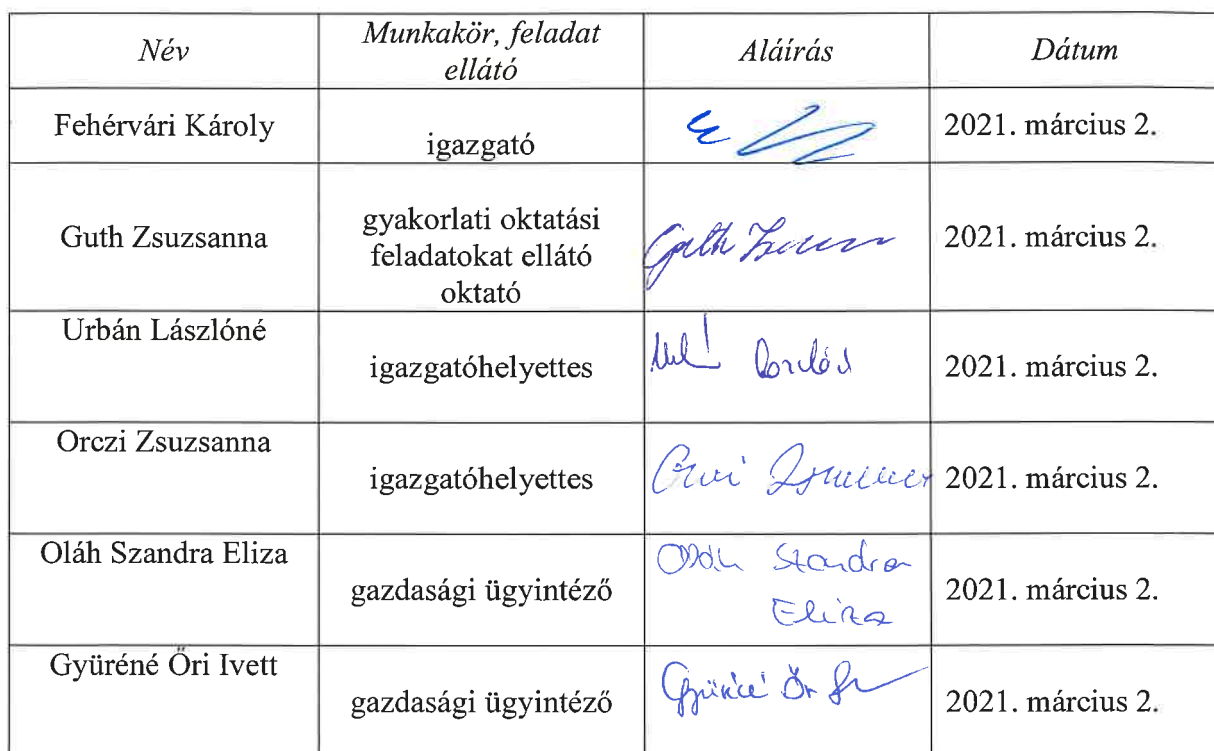 Név
Munkakör, feladat
ellátó
Aláírás
Dátum
Fehérvári Károly
igazgató
2021. március 2.
Guth Zsuzsanna
gyakorlati oktatási
feladatokat ellátó
oktató
Guth
2021. március 2.
Urbán Lászlóné
igazgatóhelyettes
2021. március 2.
Orczi Zsuzsanna
igazgatóhelyettes
2021. március 2.
Oláh Szandra Eliza
gazdasági ügyintéző
Oláh Szandra
Eliza
2021. március 2.
Gyüréné Őri Ivett
gazdasági ügyintéző
2021. március 2.